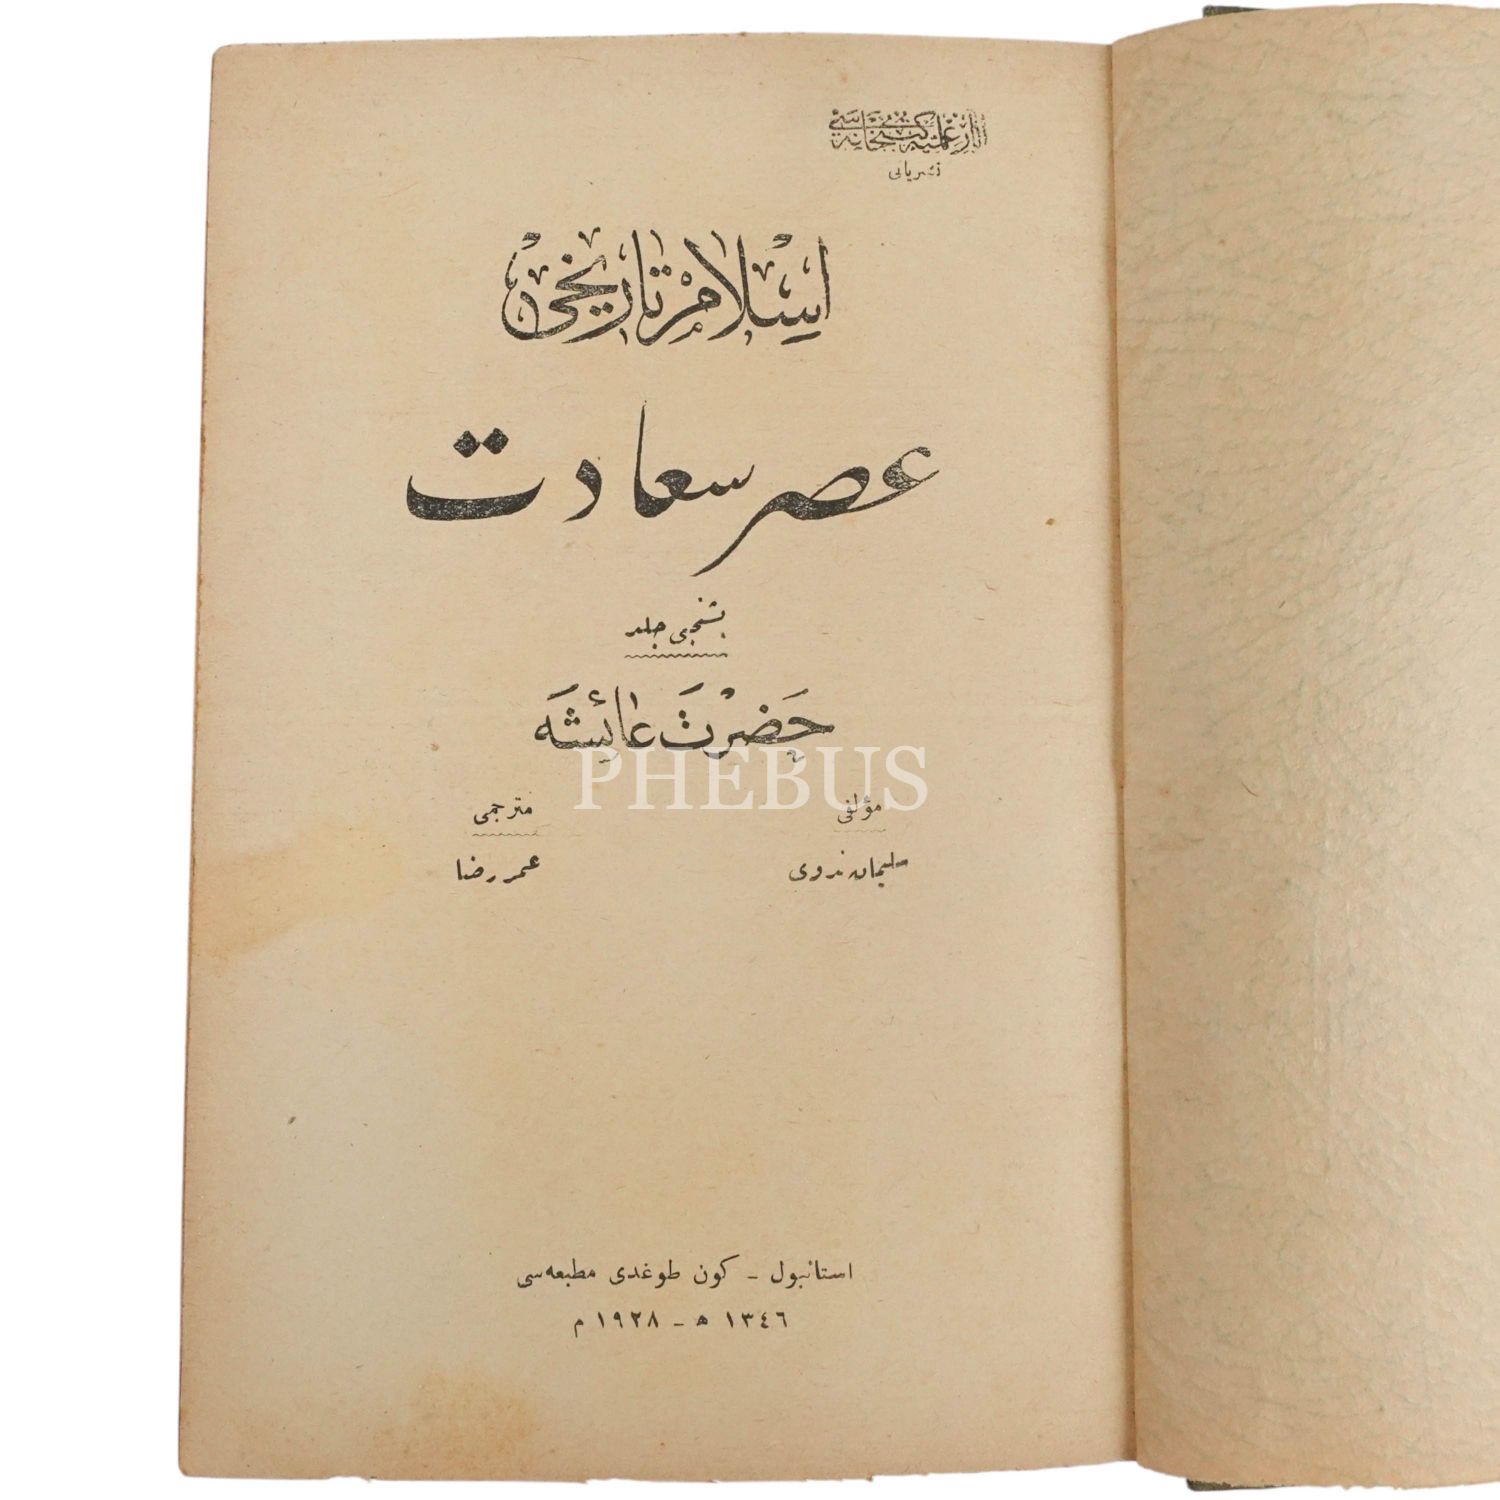 آثار علمیه کتبخانه‌سی
نشریاتی
اسلام تاریخی
عصر سعادت
بشنجی جلد
حَضرَت عائشَه
مؤلفی
سلیمان ندوی
مترجمی
عمر رضا
استانبول - كون طوغدی مطبعه‌سی
١٣٤٦ ھ - ١٩٢٨ م
PHEBUS